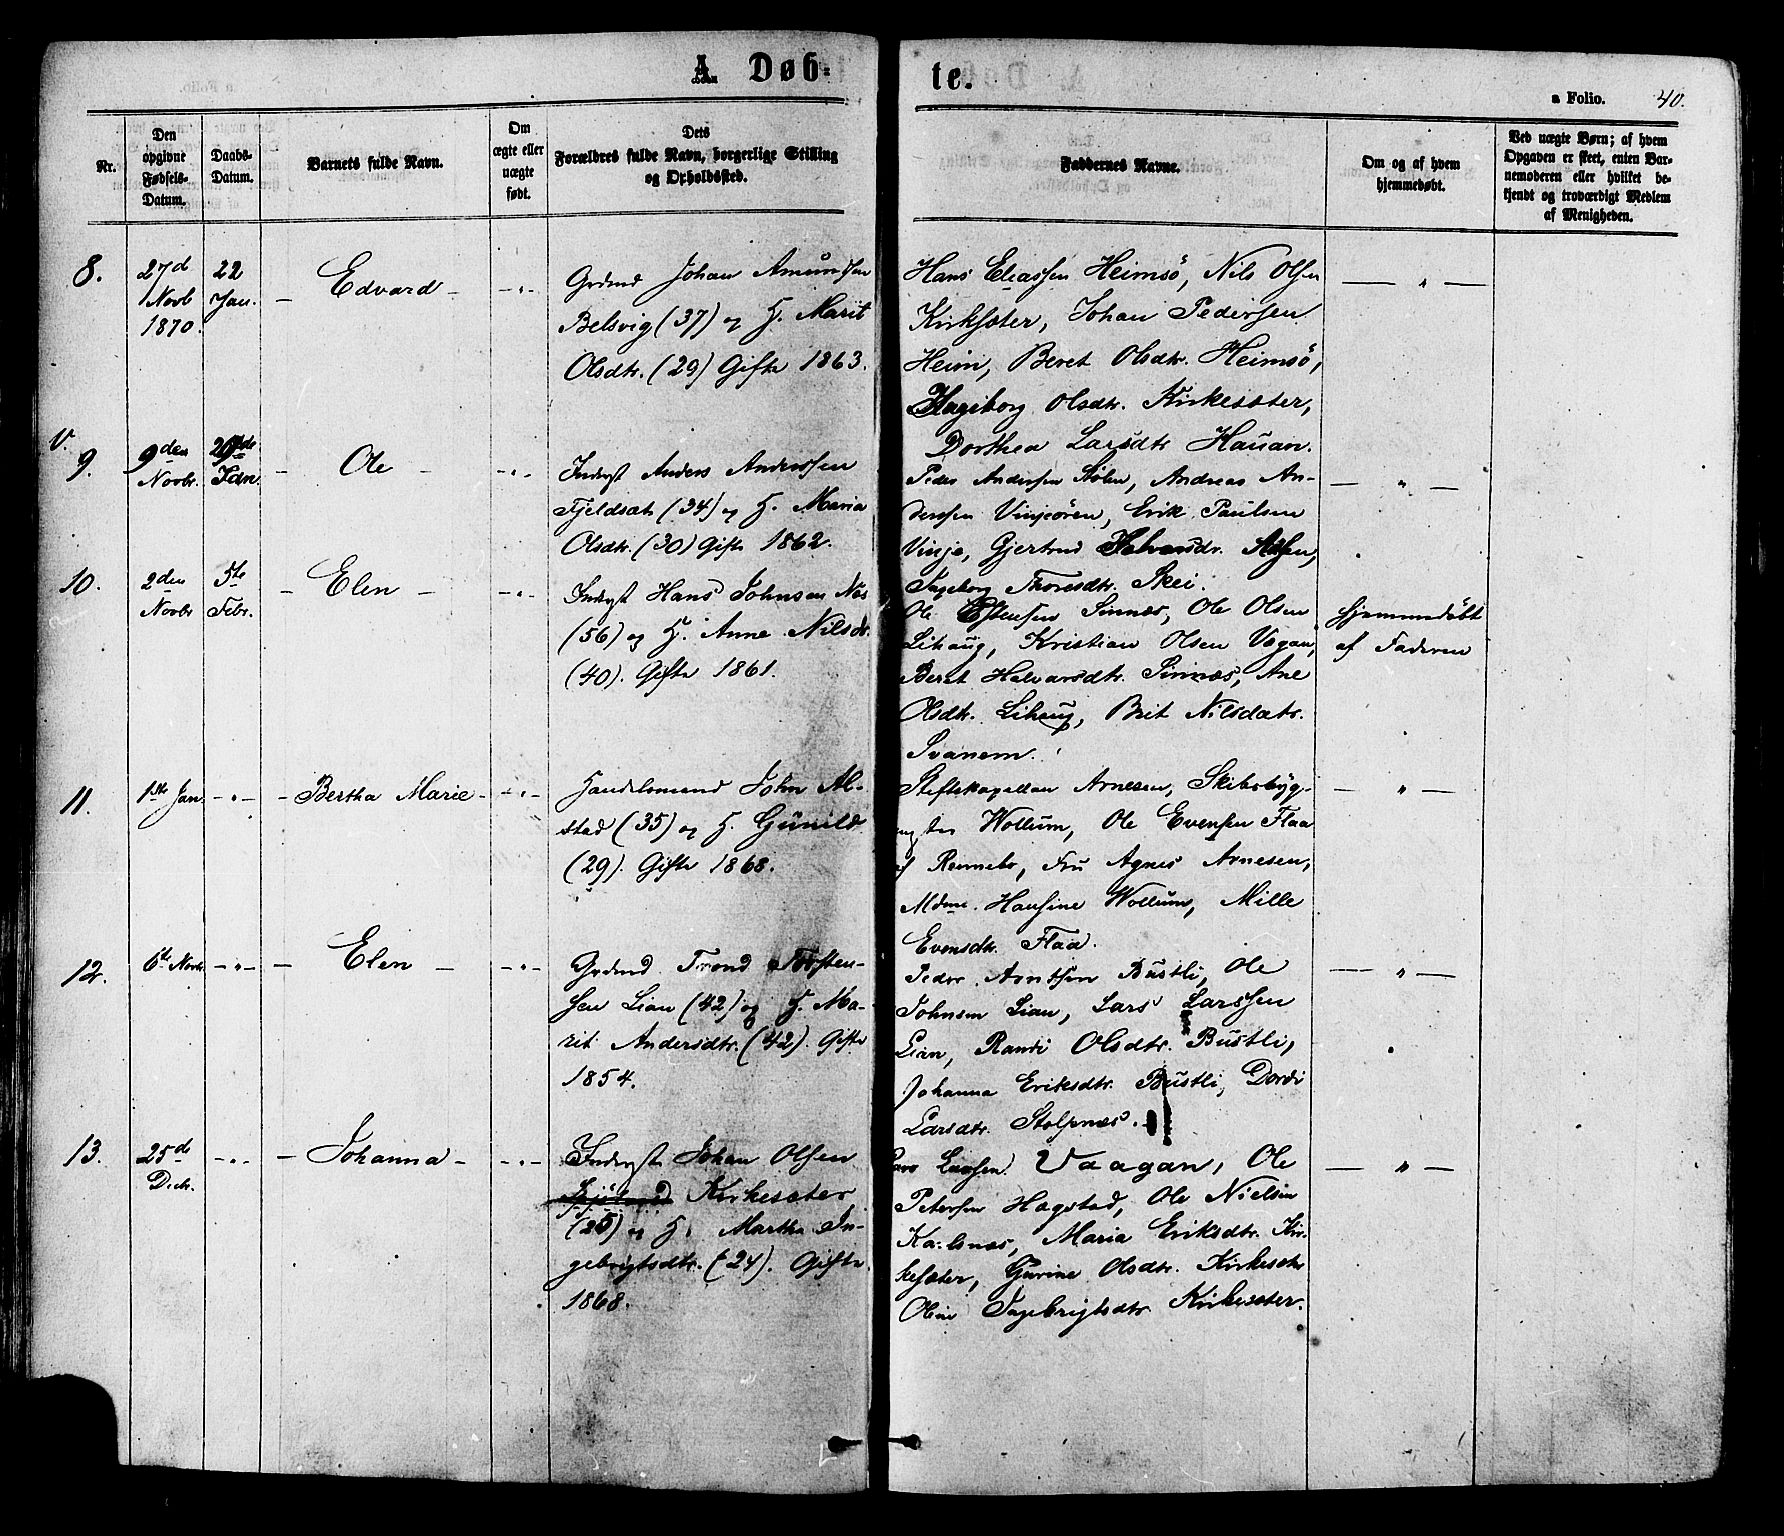 A. Døb-
te.
a Folio. 40.
Nr.
Den opgivne Fødsels-Datum.
Daabs-Datum.
Barnets fulde Navn.
Om ægte eller uægte født.
Dets Forældres fulde Navn, borgerlige Stilling og Opholdssted.
Faddernes Navne.
Om og af hvem hjemmedøbt.
Ved uægte Børn; af hvem Opgaven er skeet, enten Barnemoderen eller hvilket bekjendt og troværdigt Medlem af Menigheden.
8.
27d Novb 1870.
22 Jan.
– Edvard –
– " –
Grdmd Johan Amundsen
Belsvig (37) og H. Marit
Olsdtr. (29) Gifte 1863.
Hans Eliassen Heimsö, Nils Olsen
Kirksæter, Johan Pedersen
Heim, Beret Olsdtr. Heimsö,
Ingeborg Olsdtr. Kirkesæter,
Dorthea Larsdtr Hauan.
— " —
V.
9.
9den Novbr.
29de Jan.
– Ole –
– " –
Inderst Anders Anderssen
Fjeldsæt (34) og H. Maria
Olsdtr. (30) Gifte 1862.
Peder Anderssen Stölen, Andreas An-
derssen Vinjeören, Erik Paulsen
Vinje, Gjertrud Halvarsdr.
Ingeborg Thoresdtr. Skei.
— " —
10.
2den Novbr
5te Febr.
– Elen –
– " –
Inderst Hans Johnsen Næs
(56) og H. Anne Nilsdr.
(40). Gifte 1861.
Ole Estensen Sinnæs, Ole Olsen
Lihaug, Kristian Olsen Vagan,
Beret Halvarsdtr. Sinnæs, Ane
Olsdtr. Lihaug, Brit Nilsdatr.
Svanem.
Hjemmedöbt
af Faderen
11.
1ste Jan
– " –
– Bertha Marie –
– " –
Handelsmand John Al-
stad (35) og H. Günild
(29). Gifte 1868.
Stiftskapellan Arnesen, Skibsbyg-
ngter Wollum, Ole Evensen Flaa
af Rennebo, Fru Agnes Arnesen,
Mdme. Hansine Wollum, Mille
Evensdtr. Flaa.
— " —
12.
6te Novbr.
– " –
– Elen –
– " –
Grdmd. Trond Torsten-
sen Lian (42) og H. Ma-
rit Andersdtr. (42). Gifte
1854.
Peder Arntsen Bustli, Ole
Johnsen Lian, Lars Larssen
Lian, Randi Olsdtr. Bustli,
Johanna Eriksdtr. Bustli, Dordi
Larsdtr. Stolpnæs.
— " —
13.
25d Decb.
– " –
– Johanna –
– " –
Inderst Johan Olsen
Kirkesæter
(25) og H. Martha In-
gebrigtsdtr. (24). Gifte
1868.
Lars Larsen Vaagan, Ole
Petersen Hagstad, Ole Nielsen
Karlsnæs, Maria Eriksdtr. Kir-
kesæter, Gurine Olsdtr. Kirkesæter
Oline Ingebrigtsdtr Kirkesæter.
— " —